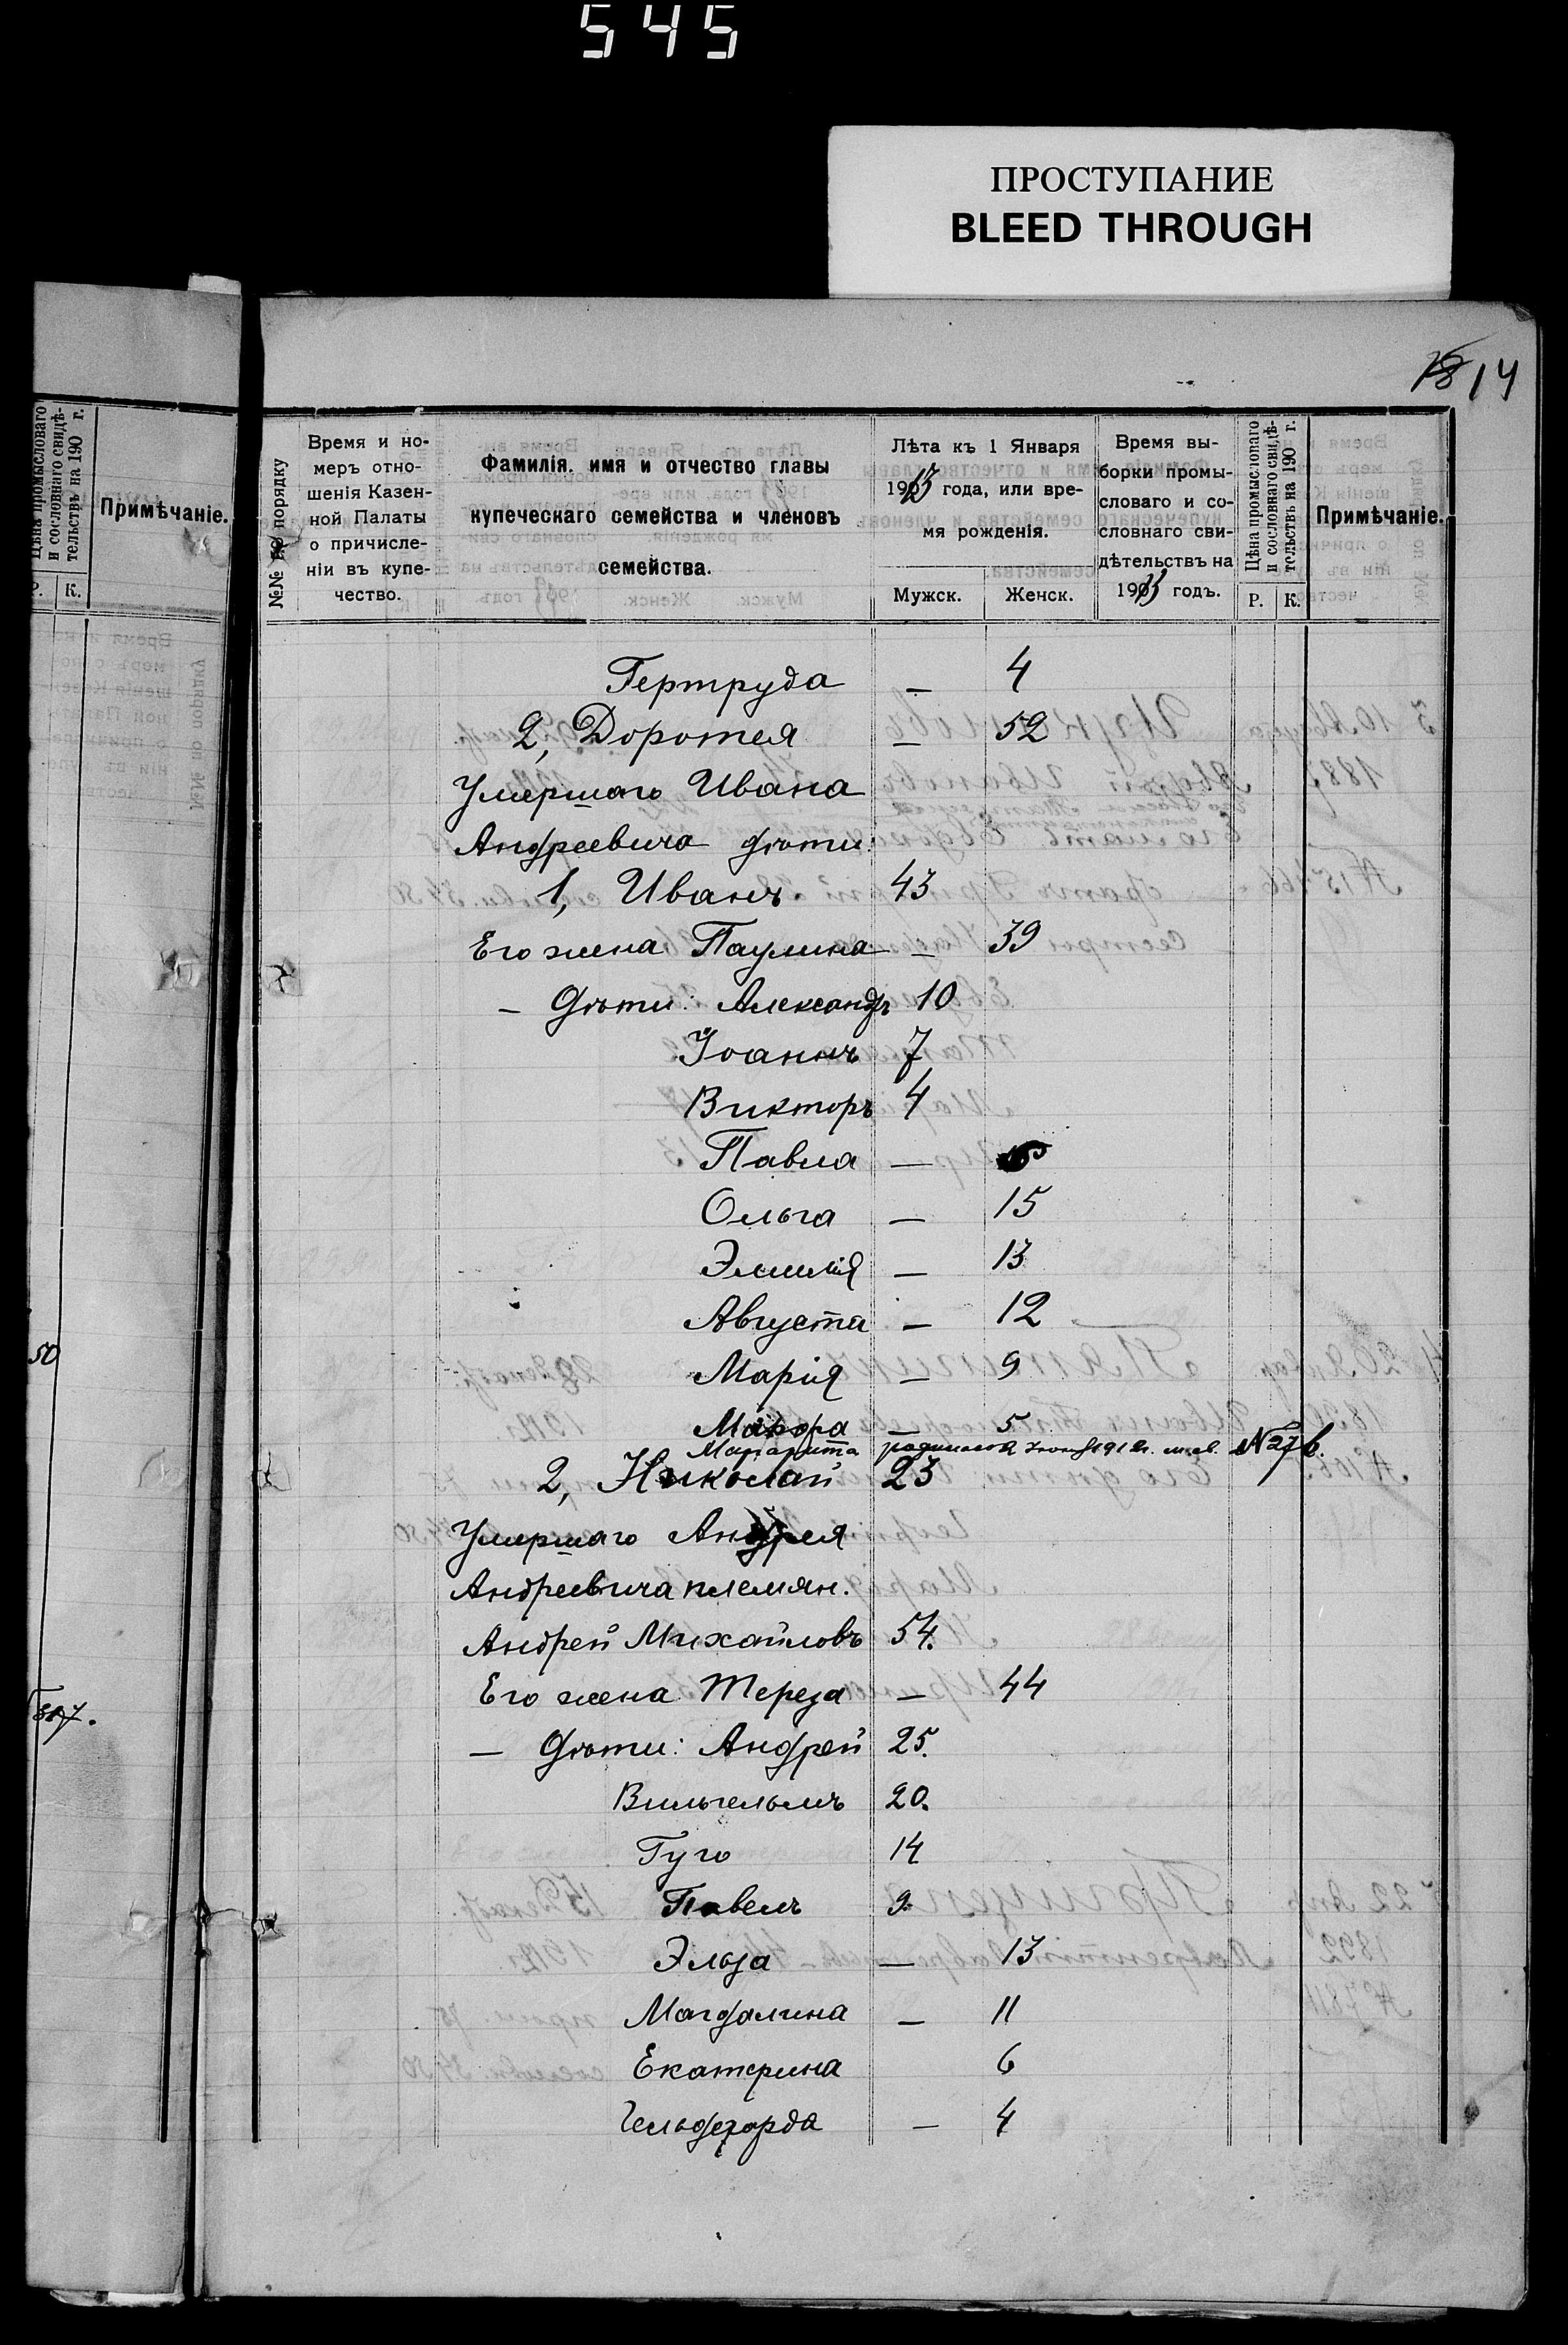 545
ПРОСТУПАНИЕ
BLEED THROUGH
14
Цѣна промысловаго и сословнаго свидѣтельствъ на 190 г.
Р. К.
Примѣчаніе.
50
№№ по порядку
Время и но-
меръ отно-
шенія Казен-
ной Палаты
о причисле-
ніи въ купе-
чество.
Фамилія, имя и отчество главы
купеческаго семейства и членовъ
семейства.
Лѣта къ 1 Января
1913 года, или вре-
мя рожденія.
Мужск. Женск.
Время вы-
борки промы-
словаго и со-
словнаго сви-
дѣтельствъ на
1913 годъ.
Цѣна промысловаго
и сословнаго свидѣ-
тельствъ на 190 г.
Р. К.
Примѣчаніе.
Гертруда — 4
2, Доротея — 52
Умершаго Ивана
Андреевича дѣти:
1, Иванъ 43
Его жена Паулина — 39
— Дѣти: Александръ 10
Іоаннъ 7
Викторъ 4
Павла —
Ольга — 15
Эмилія — 13
Августа — 12
Марія — 9
— 5
Маргарита родилась 191 г. №27
2, Николай 23
Умершаго Андрея
Андреевича племян.
Андрей Михайловъ 54.
Его жена Тереза — 44
— Дѣти: Андрей 25.
Вильгельмъ 20.
Гуго 14
Павелъ 9.
Эльза — 13
Магдалина — 11
Екатерина 6
— 4